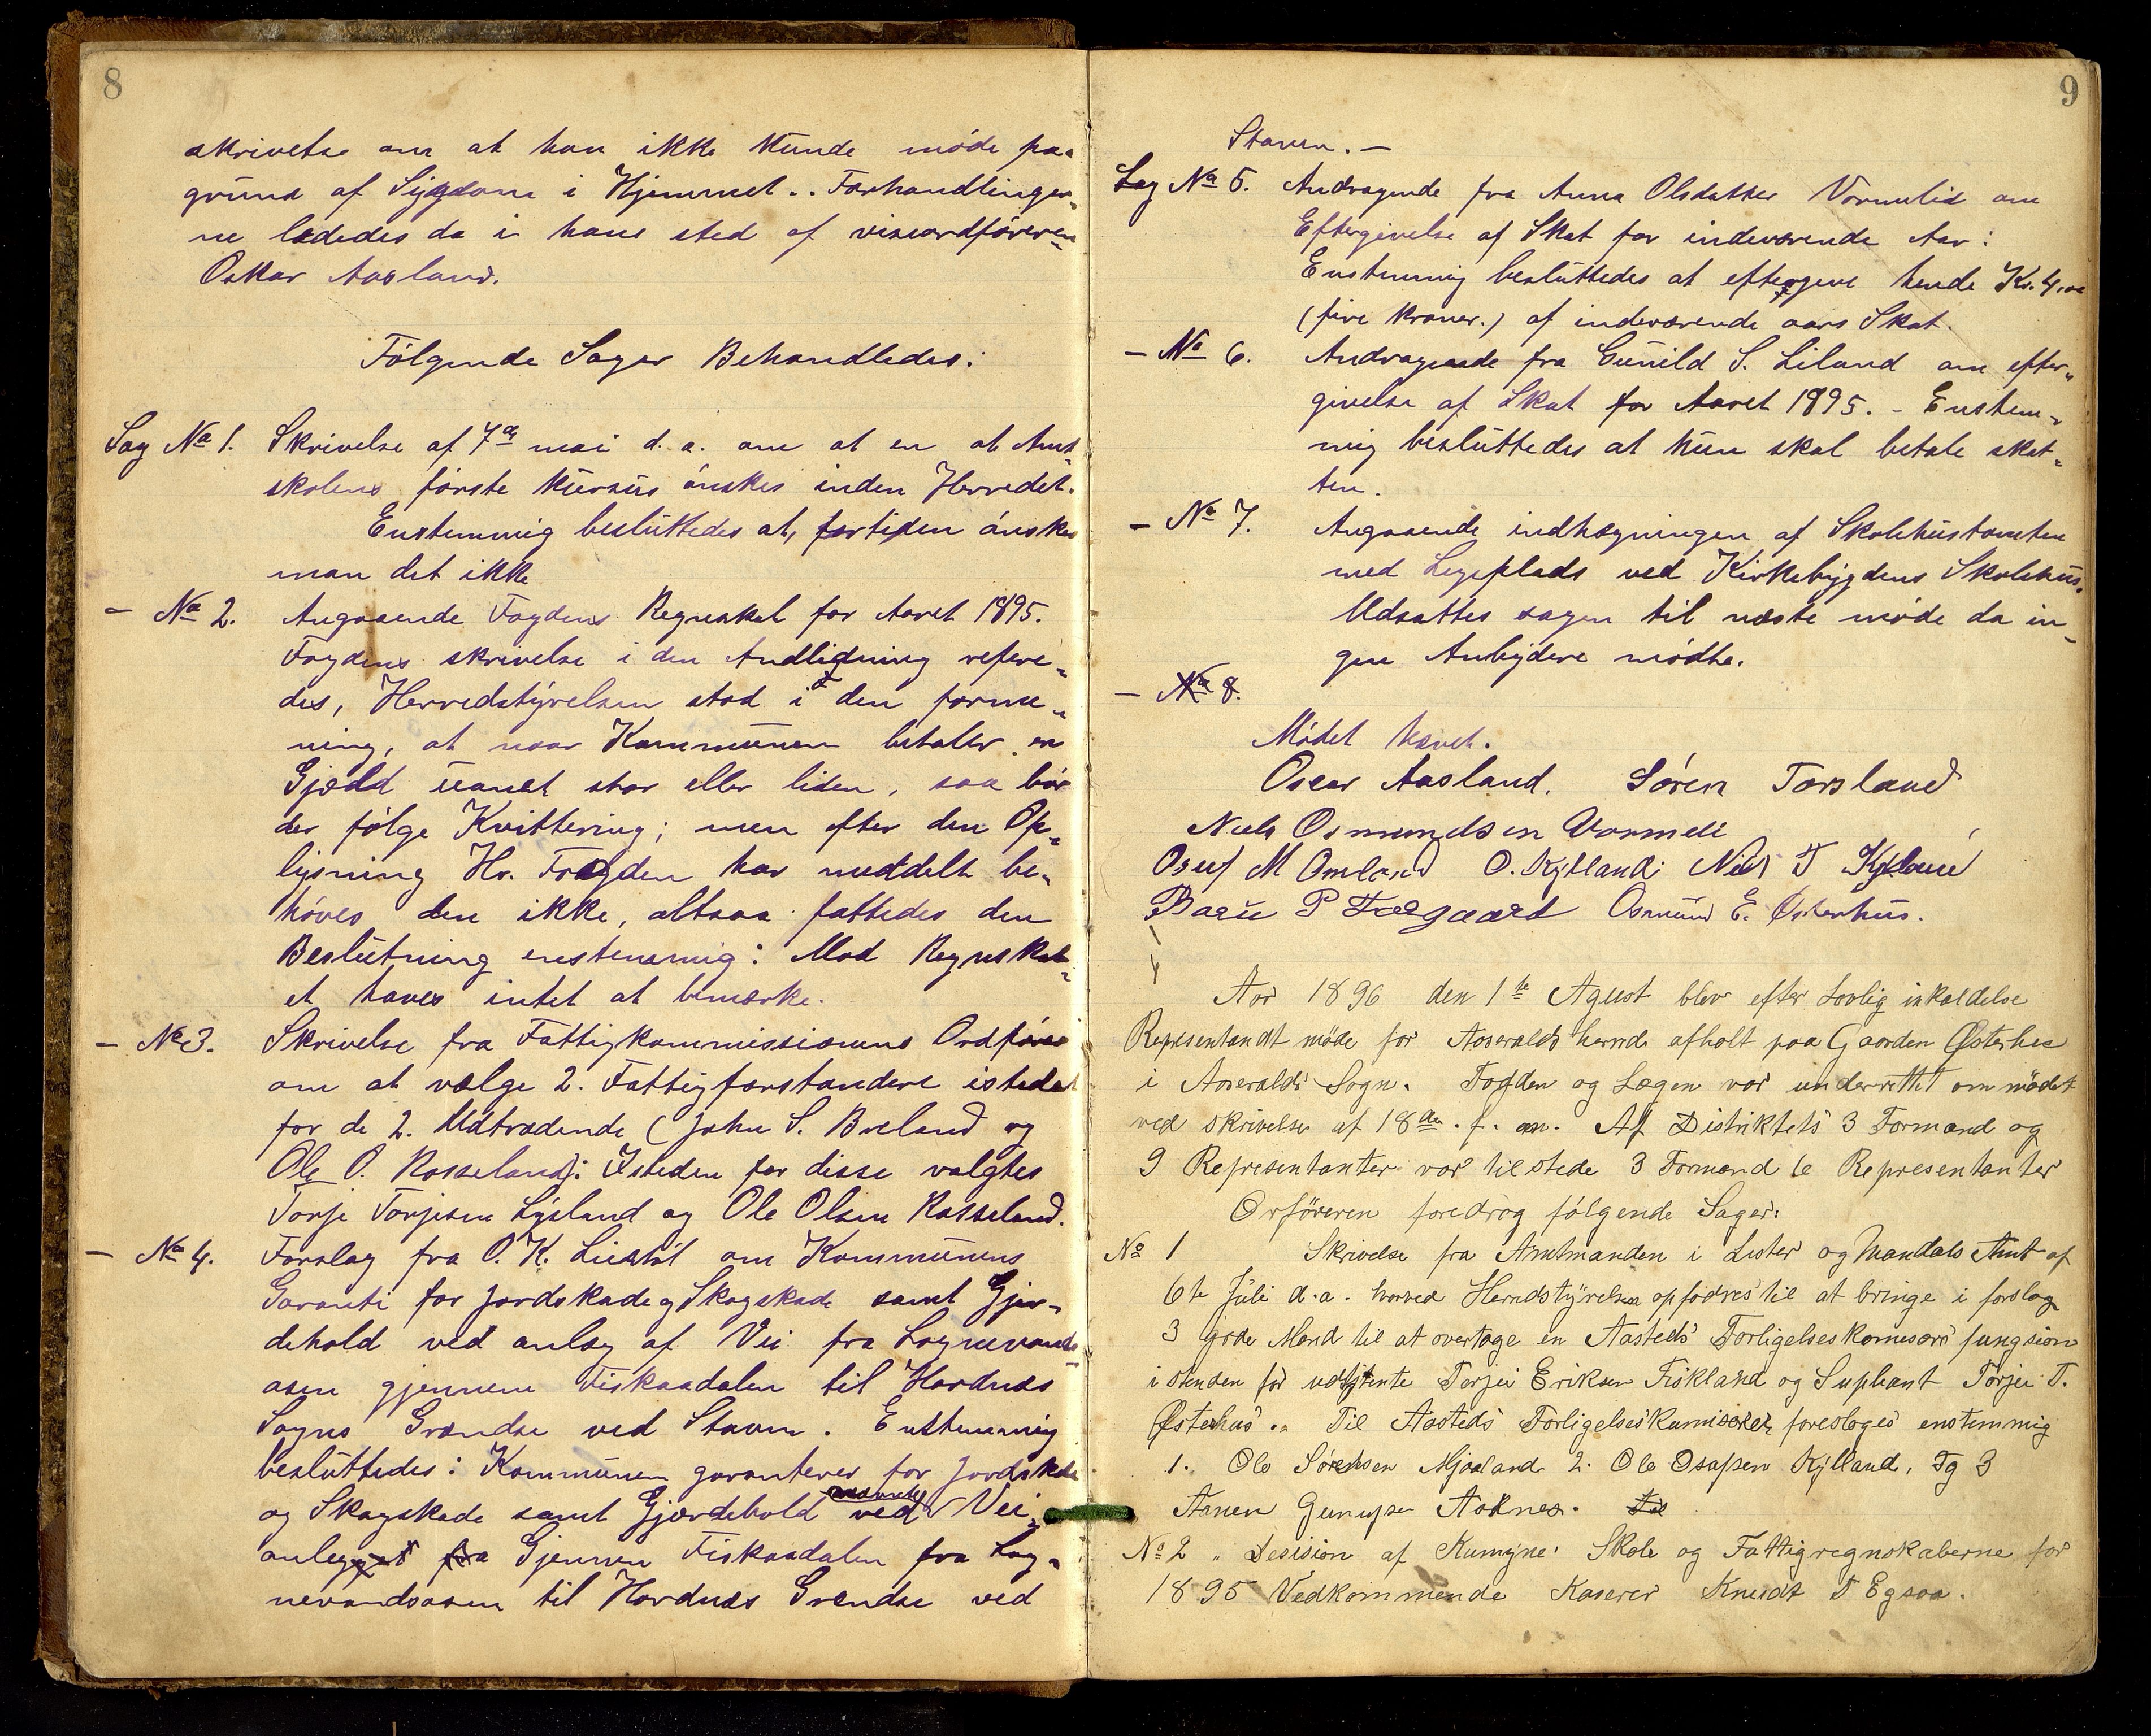 8
skrivelse om at han ikke kunde møde paa
grund af Sygdom i Hjemmet.. Forhandlinger-
ne lededes da i hans sted af viseordføreren
Oskar Aasland.
Følgende Sager Behandledes:
Sag No 1. Skrivelse af 7de mai d. a. om at en at Amt-
skolens første Kursus ønskes inden Herredet.
Enstemmig besluttedes at, fortiden ønskes
man det ikke
- No 2. Angaaende Fogdens Regnskab for Aaret 1895.
Fogdens skrivelse i den Andlidning refere-
des, Herredstyrelsen stod i den forme-
ning, at naar Kommunen betaler en
Gjæld uanset stor eller liden, saa bør
der følge Kvittering; men efter den Op-
lysning Hr. Fogden har meddelt be-
høves den ikke, altsaa fattedes den
Beslutning enstemmig: Mod Regnskab-
et haves intet at bemærke.
- No 3. Skrivelse fra Fattigkommissionens Ordfører
om at vælge 2. Fattigforstandere istedet
for de 2. Udtrædende (John S. Breland og
Ole O. Rosseland): Isteden for disse valgtes
Torje Torjesen Lysland og Ole Olsen Rosseland.
- No 4. Forslag fra O. K. Liestøl om Kommunens
Garanti for Jordskade og Skogskade samt Gjer-
dehold ved anlæg af Vei fra Lognevands-
osen gjennem Fiskaadalen til Hordnes
Sogns Grændse ved Staven. Enstemmig
besluttedes: Kommunen garanterer for Jordskade
og Skogskade samt Gjærdehold ved Vei-
anlegget fra Gjennem Fiskaadalen fra Log-
nevandsosen til Hordnes Grendse ved
9
Staven. -
Sag No 5. Andragende fra Anna Olsdatter Vormelid om
Eftergivelse af Skat for indeværende Aar:
Enstemmig besluttedes at eftergive hende Kr. 4,00
(fire kroner.) af indeværende aars Skat.
- No 6. Andragende fra Gunild S. Liland om efter-
givelse af Skat for Aaret 1895. - Enstem-
mig besluttedes at hun skal betale skat-
ten.
- No 7. Angaaende indhegningen af Skolehustomten
med Legeplads ved Kirkebygdens Skolehus.
Udsattes sagen til næste møde da in-
gen Anbydere mødte.
- No 8.
Mødet hævet.
Oscar Aasland. Søren Torsland
Niels Osmundsen Vormeli
Osuf M Omland O. Kylland Nils T Kylland
Baaru P Forgaard Osmund E. Østerhus.
Aar 1896 den 1te Agust blev efter Lovlig inkaldelse
Representandt møde for Aaseralds herrde afholt paa Gaarden Østerhus
i Aaseralds Sogn. Fogden og Lægen var underrettet om mødet
ved skrivelse af 18de f. m. Af Distriktets 3 Formænd og
9 Representanter var tilstede 3 Formænd 6 Representanter
Orføreren foredrog følgende Sager.
No 1 Skrivelse fra Amtmanden i Lister og Mandals Amt af
6te Juli d.a. hvorved Herrdstyrelsen opfodres til at bringe i forslag
3 gode Mænd til at overtage en Aasteds Forligelseskomesærs fungsion
i stenden for udsktente Terjei Eriksen Fiskland og Supleant Torjei T.
Østerhus. Til Aasteds Forligelses Kamisærer foresloges enstemmig
1. Ole Sørensen Mjaaland 2. Ole Osafsen Kylland, Og 3
Aanen Aaknes. Til
No 2 " Desision af Kumyne Skole og Fattigregnskaberne for
1895 Vedkommende Kaserer Knudt T Egsaa.